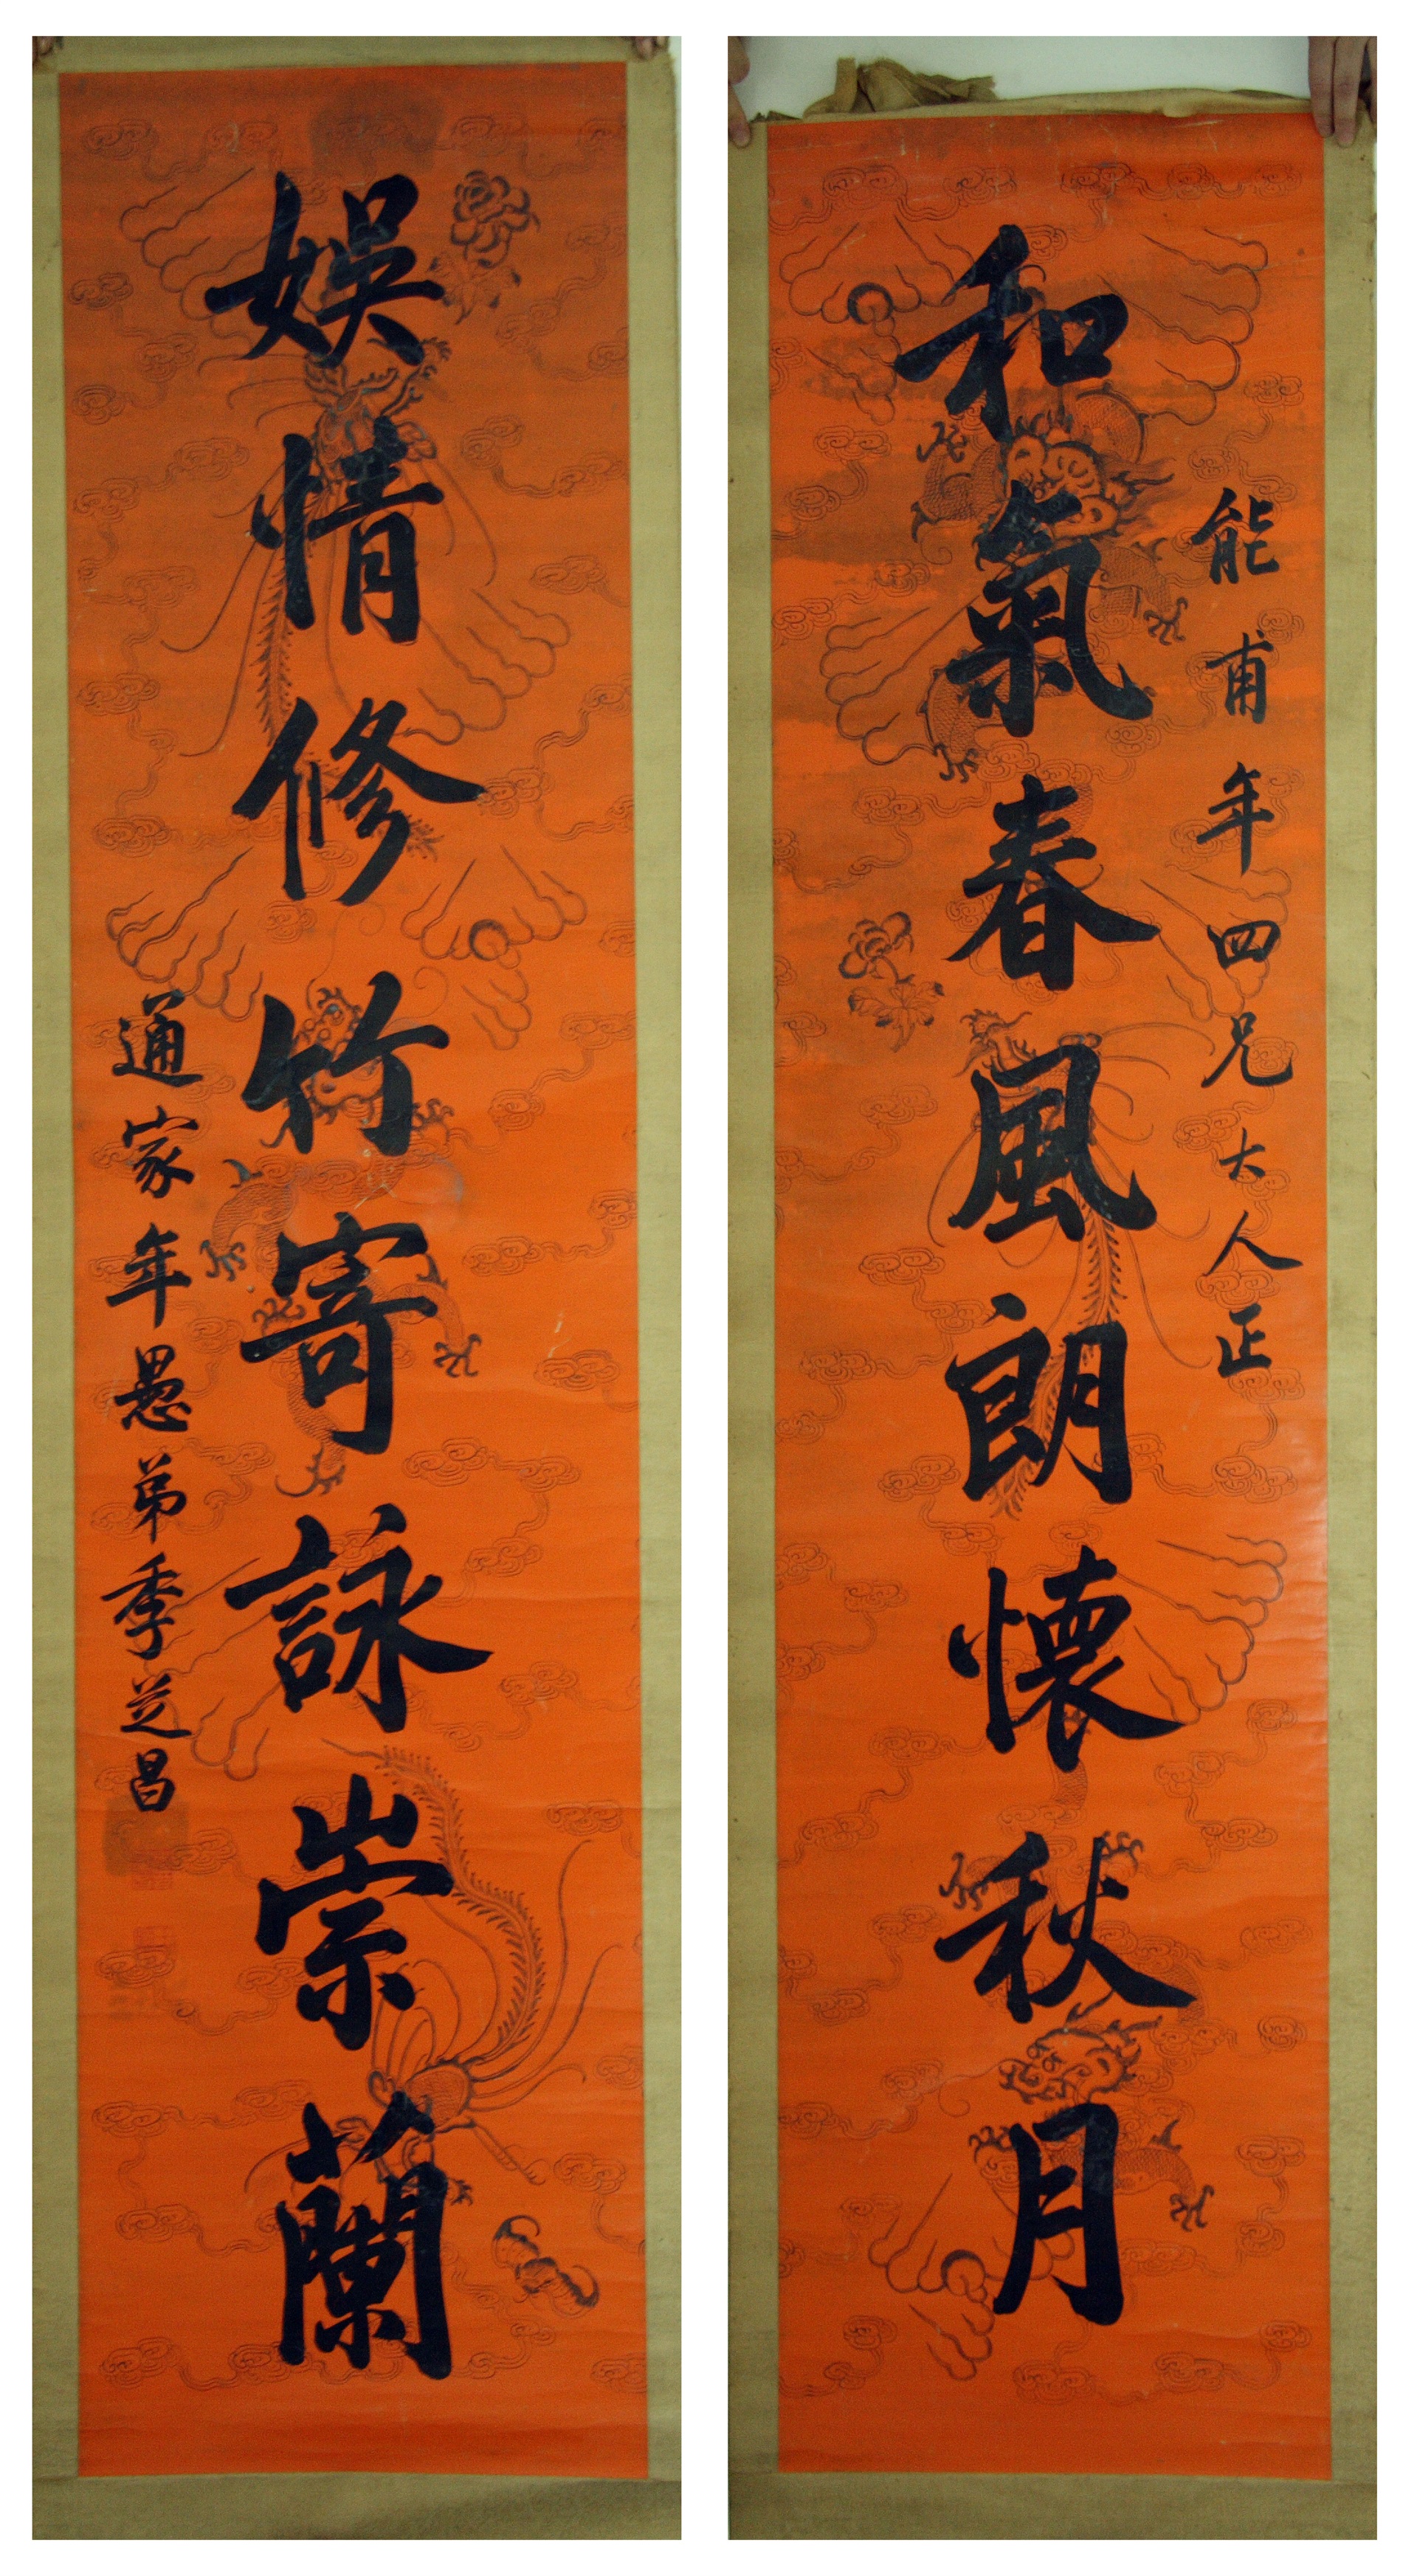 能甫年四兄大人正
和氣春風朗懷秋月
娛情修竹寄詠崇蘭
通家年愚弟季芝昌